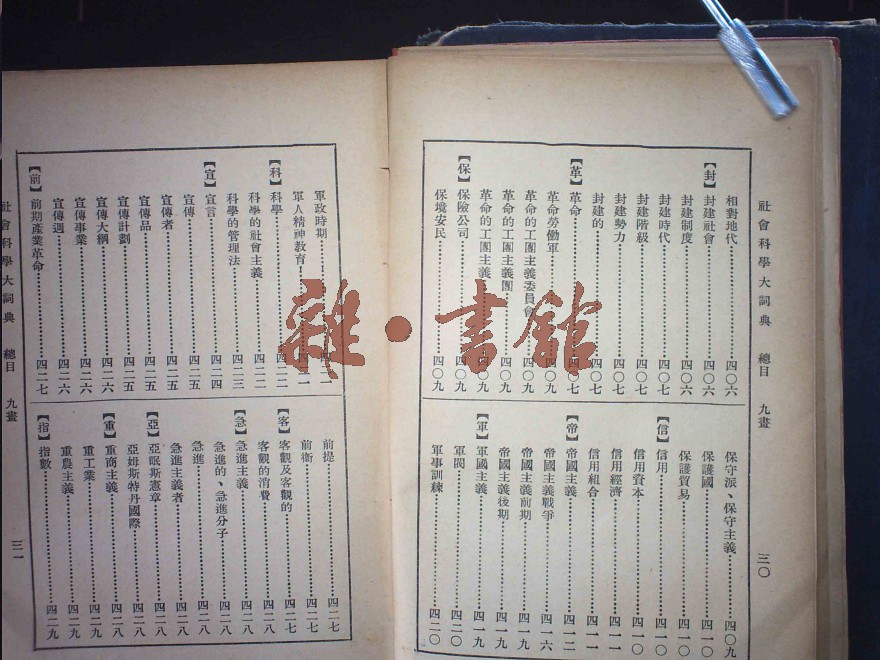 社會科學大詞典 總目 九畫 三〇
相對地代 四〇六
【封】封建社會 四〇六
封建制度 四〇六
封建時代 四〇七
封建階級 四〇七
封建勢力 四〇七
封建的 四〇七
【革】革命 四〇七
革命勞働軍 四〇九
革命的工團主義委員會 四〇九
革命的工團主義團 四〇九
革命的工團主義 四〇九
【保】保險公司 四〇九
保境安民 四〇九
保守派、保守主義 四〇九
保護國 四一〇
保護貿易 四一〇
【信】信用 四一〇
信用資本 四一〇
信用經濟 四一一
信用組合 四一一
【帝】帝國主義 四一二
帝國主義戰爭 四一六
帝國主義前期 四一九
帝國主義後期 四一九
【軍】軍國主義 四一九
軍閥 四二〇
軍事訓練 四二〇
軍政時期 四二一
軍人精神教育 四二一
【科】科學 四二二
科學的社會主義 四二二
科學的管理法 四二三
【宣】宣言 四二四
宣傳 四二五
宣傳者 四二五
宣傳品 四二五
宣傳計劃 四二五
宣傳大綱 四二六
宣傳事業 四二六
宣傳週 四二六
【前】前期產業革命 四二七
前提 四二七
前衛 四二七
【客】客觀及客觀的 四二七
客觀的消費 四二八
【急】急進主義 四二八
急進的、急進分子 四二八
急進 四二八
急進主義者 四二八
【亞】亞眠斯憲章 四二八
亞姆斯特丹國際 四二八
【重】重商主義 四二八
重工業 四二九
重農主義 四二九
【指】指數 四二九
社會科學大詞典 總目 九畫 三一
雜·書館